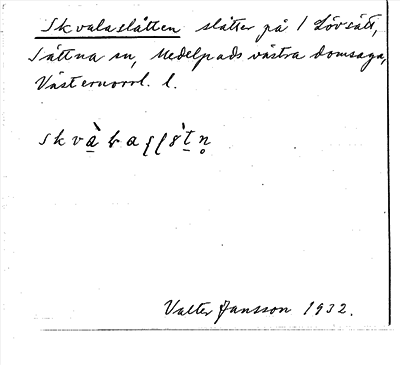 Skvalaslåtten slåtter på 1 Lövsätt,
Sättna sn, Medelpads västra domsaga,
Västernorrl. l.
Valter Jansson 1932.